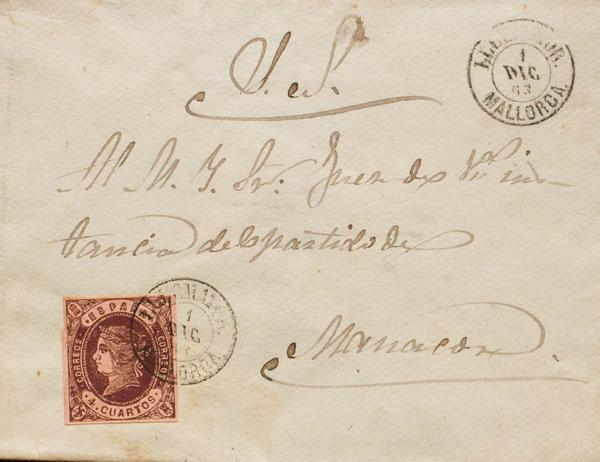 U. S.
1
DIC
63
MALLORCA.
Al M. I. Sr. Juez de 1ª ins-
tancia del partido de
Manacor
ESPAÑA
CORREOS
CORREOS
4 CUARTOS
1
DIC
MALLORCA